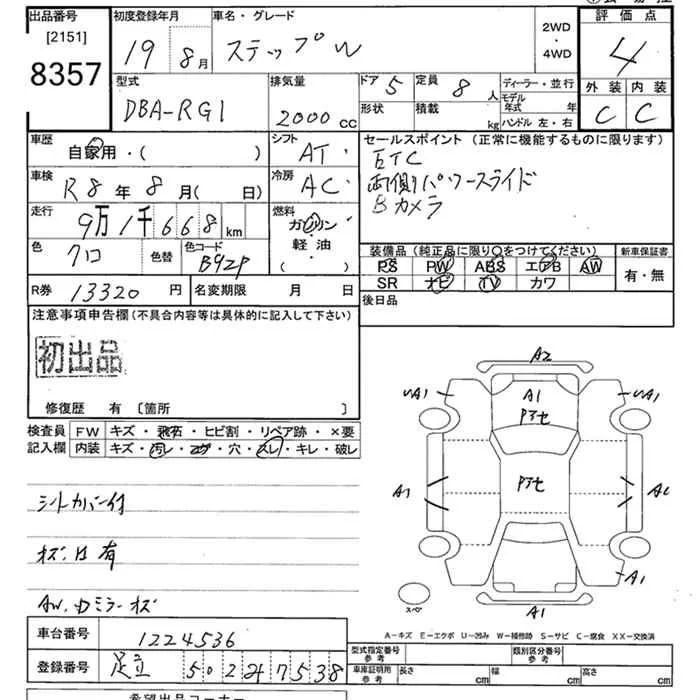 出品番号
[2151]
8357
初度登録年月
19 8月
車名・グレード
ステップW
2WD
・
4WD
評価点
4
外装 内装
C C
型式
DBA-RG1
排気量
2000 cc
ドア 5
定員 8 人
形状
積載 kg
ディーラー・並行
モデル年式 年
ハンドル 左・右
車歴
自家用・( )
シフト
AT
セールスポイント(正常に機能するものに限ります)
ETC
両側パワースライド
Bカメラ
車検
R8年8月( 日)
冷房
AC
走行
9万1千668km
燃料
ガソリン
軽油
( )
色
クロ
色替
色コード
B92P
装備品(純正品に限り○をつけてください)
PS PW ABS エアB AW
SR ナビ TV カワ
新車保証書
有・無
R券 13320円
名変期限 月 日
後日品
注意事項申告欄(不具合内容等は具体的に記入して下さい)
初出品
修復歴 有 〔箇所 〕
検査員
記入欄
FW キズ・飛石・ヒビ割・リペア跡・×要
内装 キズ・汚レ・コゲ・穴・スレ・キレ・破レ
シートカバー付
AW、Dミラーキズ
A2
A1
A1
A1
A1
A1
A1
スペ
A-キズ E-エクボ U-凹み W-補修跡 S-サビ C-腐食 XX-交換済
車台番号 1224536
登録番号 足立 502 7538
型式指定番号
参考
類別区分番号
参考
車庫証明用
参考
長さ cm
幅 cm
高さ cm
希望出品コーナー